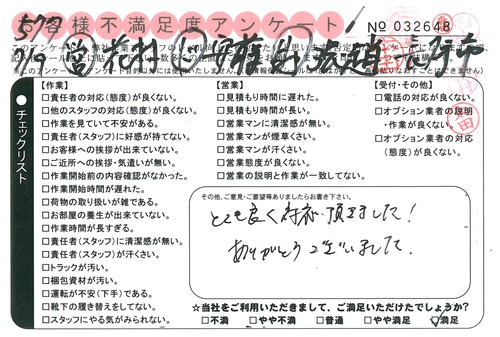 お客様不満足度アンケート
№ 032648
7/19
チェックリスト
【作業】
□責任者の対応(態度)が良くない。
□他のスタッフの対応(態度)が良くない。
□作業を見ていて不安がある。
□責任者(スタッフ)に好感が持てない。
□お客様への挨拶が出来ていない。
□ご近所への挨拶・気遣いが無い。
□作業開始前の内容確認がなかった。
□作業開始時間が遅れた。
□荷物の取り扱いが雑である。
□お部屋の養生が出来ていない。
□作業時間が長すぎる。
□責任者(スタッフ)に清潔感が無い。
□責任者(スタッフ)が汗くさい。
□トラックが汚い。
□梱包資材が汚い。
□運転が不安(下手)である。
□靴下の履き替えをしてない。
□スタッフにやる気がみられない。
【営業】
□見積もり時間に遅れた。
□見積もり時間が長い。
□営業マンに清潔感が無い。
□営業マンが煙草くさい。
□営業マンが汗くさい。
□営業態度が良くない。
□営業の説明と作業が一致してない。
【受付・その他】
□電話の対応が良くない。
□オプション業者の説明
・作業が良くない。
□オプション業者の対応
(態度)が良くない。
その他、ご意見・ご要望等ありましたらお書き下さい。
とても良く対応頂きました!
ありがとうございました。
☆当社をご利用いただきまして、ご満足いただけたでしょうか?
□不満 □やや不満 □普通 □やや満足 □満足